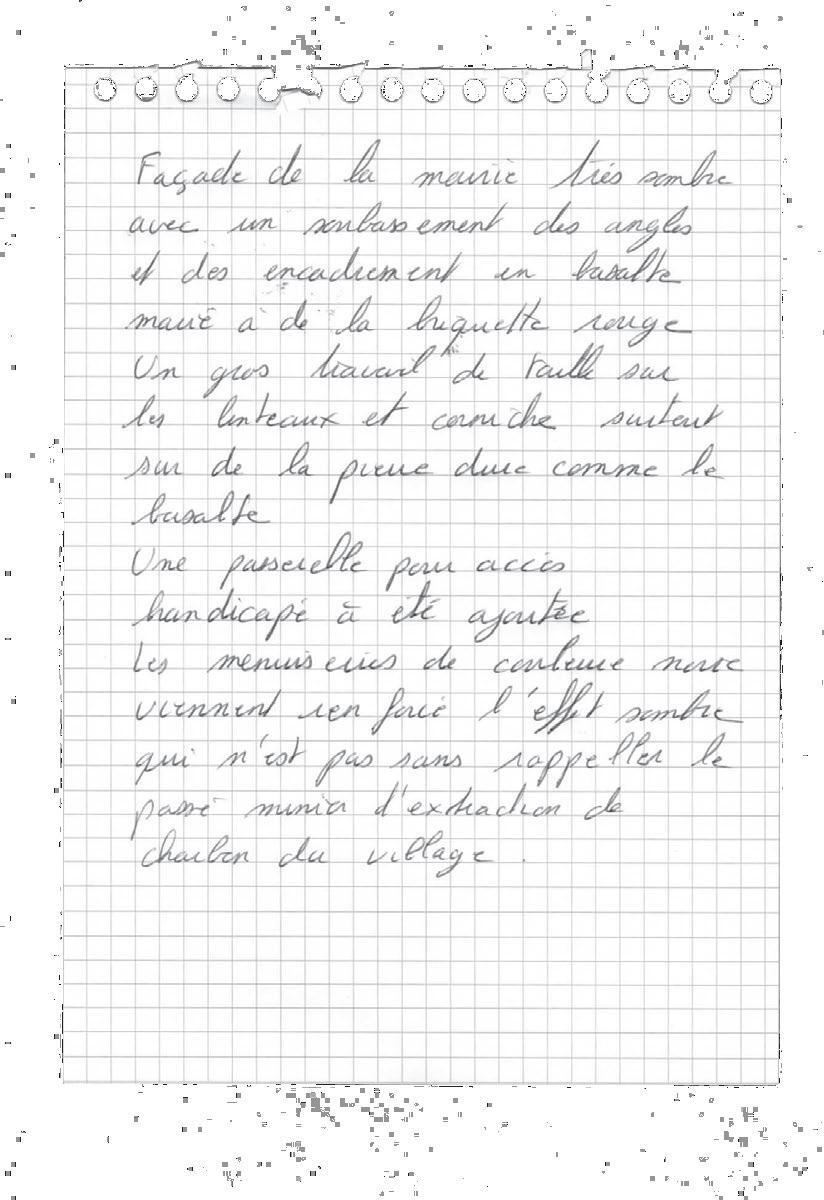 Façade de la mairie très sombre
avec un soubassement des angles
et des encadrement en basalte
marié à de la briquette rouge
Un gros travail de taille sur
les linteaux et corniche surtout
sur de la pierre dure comme le
basalte
Une passerelle pour accès
handicapé à été ajoutée
Les menuiseries de couleure noire
viennent renforcé l'effet sombre
qui n'est pas sans rappeller le
passé minier d'extraction de
charbon du village.